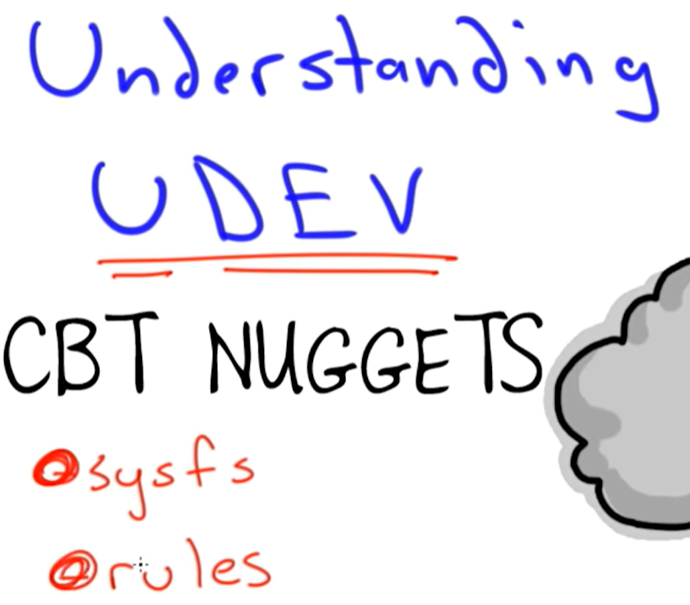 Understanding
UDEV
CBT NUGGETS
sysfs
rules